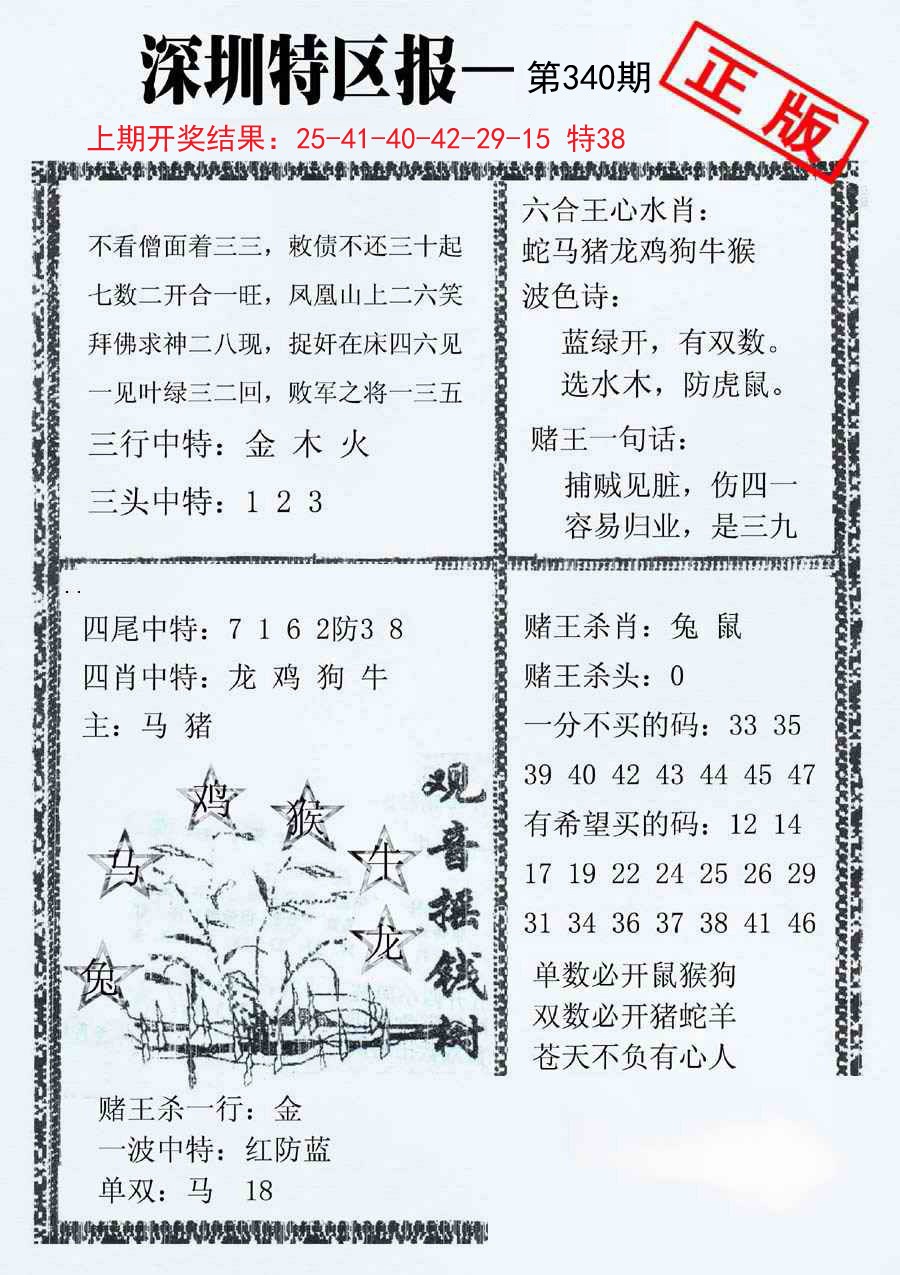 深圳特区报—第340期
正版
上期开奖结果：25-41-40-42-29-15 特38
不看僧面着三三，敕债不还三十起
七数二开合一旺，凤凰山上二六笑
拜佛求神二八现，捉奸在床四六见
一见叶绿三二回，败军之将一三五
三行中特：金 木 火
三头中特：1 2 3
六合王心水肖：
蛇马猪龙鸡狗牛猴
波色诗：
蓝绿开，有双数。
选水木，防虎鼠。
赌王一句话：
捕贼见脏，伤四一
容易归业，是三九
四尾中特：7 1 6 2防3 8
四肖中特：龙 鸡 狗 牛
主：马 猪
鸡
猴
马
牛
龙
兔
观音摇钱树
赌王杀一行：金
一波中特：红防蓝
单双：马 18
赌王杀肖：兔 鼠
赌王杀头：0
一分不买的码：33 35
39 40 42 43 44 45 47
有希望买的码：12 14
17 19 22 24 25 26 29
31 34 36 37 38 41 46
单数必开鼠猴狗
双数必开猪蛇羊
苍天不负有心人